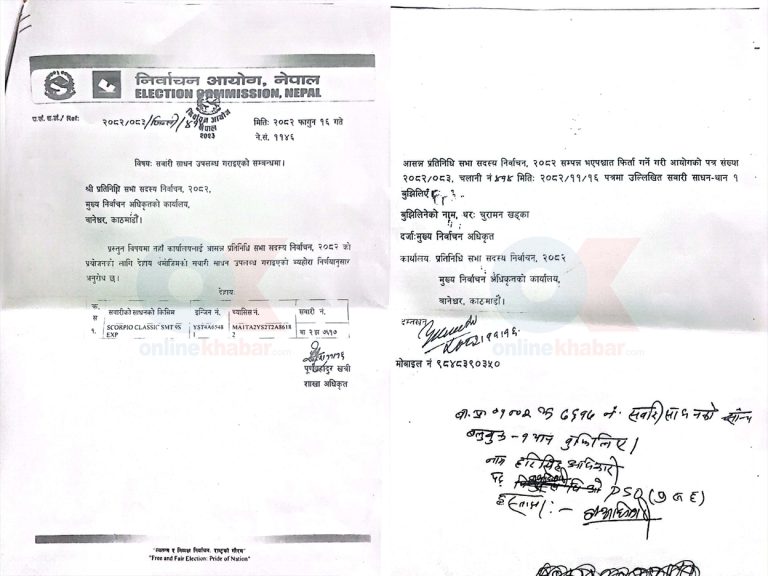 निर्वाचन आयोग, नेपाल
ELECTION COMMISSION, NEPAL
निर्वाचन आयोग
नेपाल
२०२३
प.सं./च.सं./ Ref:
२०८२/०८३/
मिति: २०८२ फागुन १६ गते
ने.सं. ११४६
विषयः सवारी साधन उपलब्ध गराइएको सम्बन्धमा।
श्री प्रतिनिधि सभा सदस्य निर्वाचन, २०८२,
मुख्य निर्वाचन अधिकृतको कार्यालय,
बानेश्वर, काठमाडौं।
प्रस्तुत विषयमा तहाँ कार्यालयलाई आसन्न प्रतिनिधि सभा सदस्य निर्वाचन, २०८२ को
प्रयोजनको लागि देहाय बमोजिमको सवारी साधन उपलब्ध गराइएको व्यहोरा निर्णयानुसार
अनुरोध छ।
देहाय
क्र स सवारीको साधनको किसिम इन्जिन नं. च्यासिस नं. सवारी नं.
१. SCORPIO CLASSIC SMT 9S EXP YST4A65481 MA1TA2YS2T2A86182 बा २ झ ७५१०
पूर्णबहादुर खत्री
शाखा अधिकृत
"स्वतन्त्र र निष्पक्ष निर्वाचनः राष्ट्रको गौरव"
"Free and Fair Election: Pride of Nation"
आसन्न प्रतिनिधि सभा सदस्य निर्वाचन, २०८२ सम्पन्न भएपश्चात फिर्ता गर्ने गरी आयोगको पत्र संख्या
२०८२/०८३, चलानी नं ४१४ मितिः २०८२/११/१६ पत्रमा उल्लिखित सवारी साधन-थान १
बुझिलिएँ
बुझिलिनेको नाम, थरः चुरामन खड्का
दर्जाःमुख्य निर्वाचन अधिकृत
कार्यालय प्रतिनिधि सभा सदस्य निर्वाचन, २०८२
मुख्य निर्वाचन अधिकृतको कार्यालय,
बानेश्वर, काठमाडौं।
दस्तखतः
२०८२।११।१६
मोबाइल नं ९८४८३९०३५०
बा.प्र. ०१००२ च ७६१५ नं. सवारी साधनको साँचो
थान बुझिलिए।
नाम हरि सिंह
पद DSP
onlinekhabar.com
onlinekhabar.com